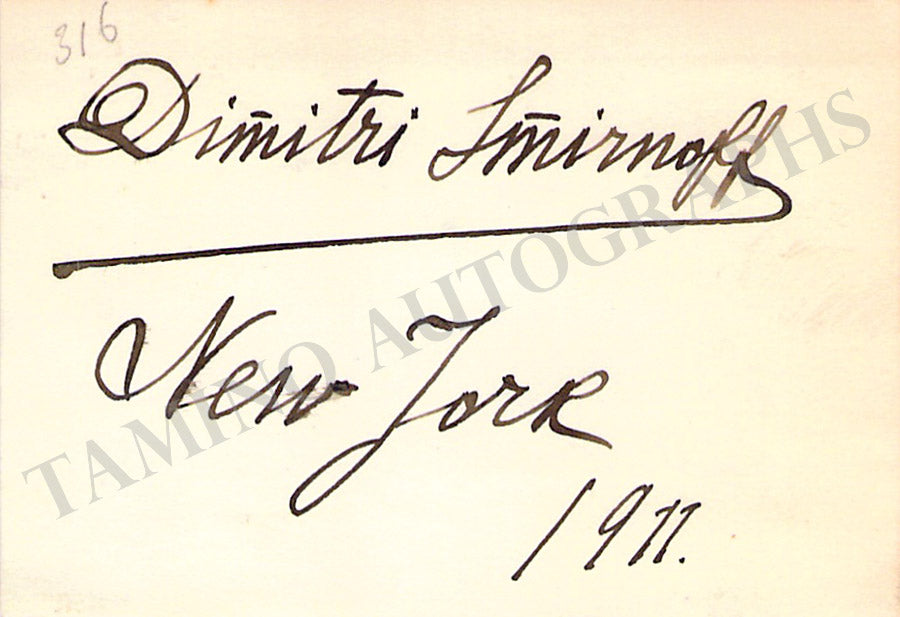 316
Dimitri Smirnoff
New York
1911.
TAMINO AUTOGRAPHS